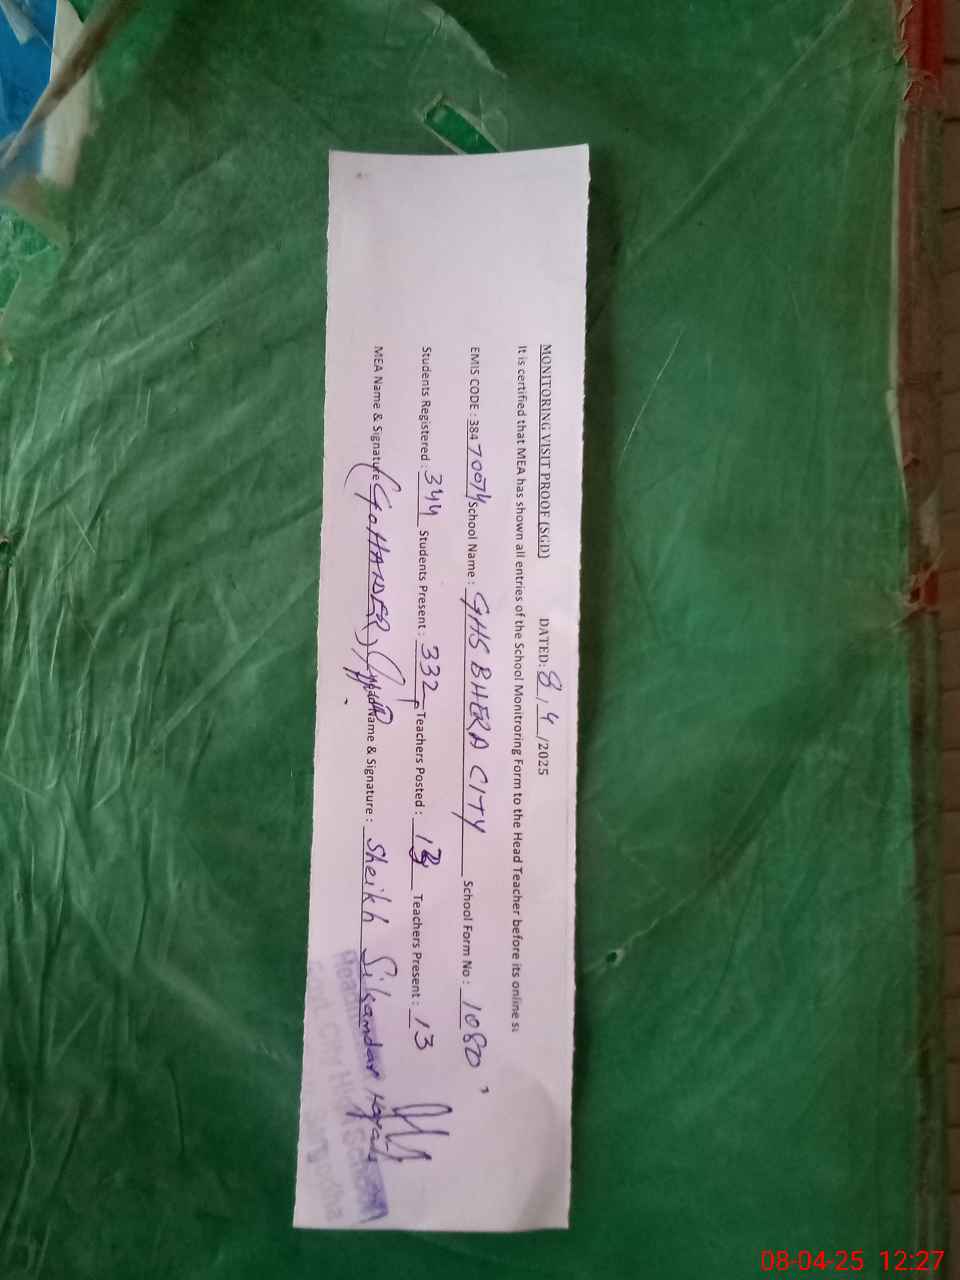 MONITORING VISIT PROOF (SGD) DATED: 8/4/2025
It is certified that MEA has shown all entries of the School Monitroring Form to the Head Teacher before its online
EMIS CODE : 38470074 School Name : GHS BHERA CITY School Form No : 1080
Students Registered : 344 Students Present : 332 Teachers Posted : Teachers Present : 13
MEA Name & Signature (GOHANDER) Name & Signature : Sheikh Sikandar
Govt. City High School
08-04-25 12:27